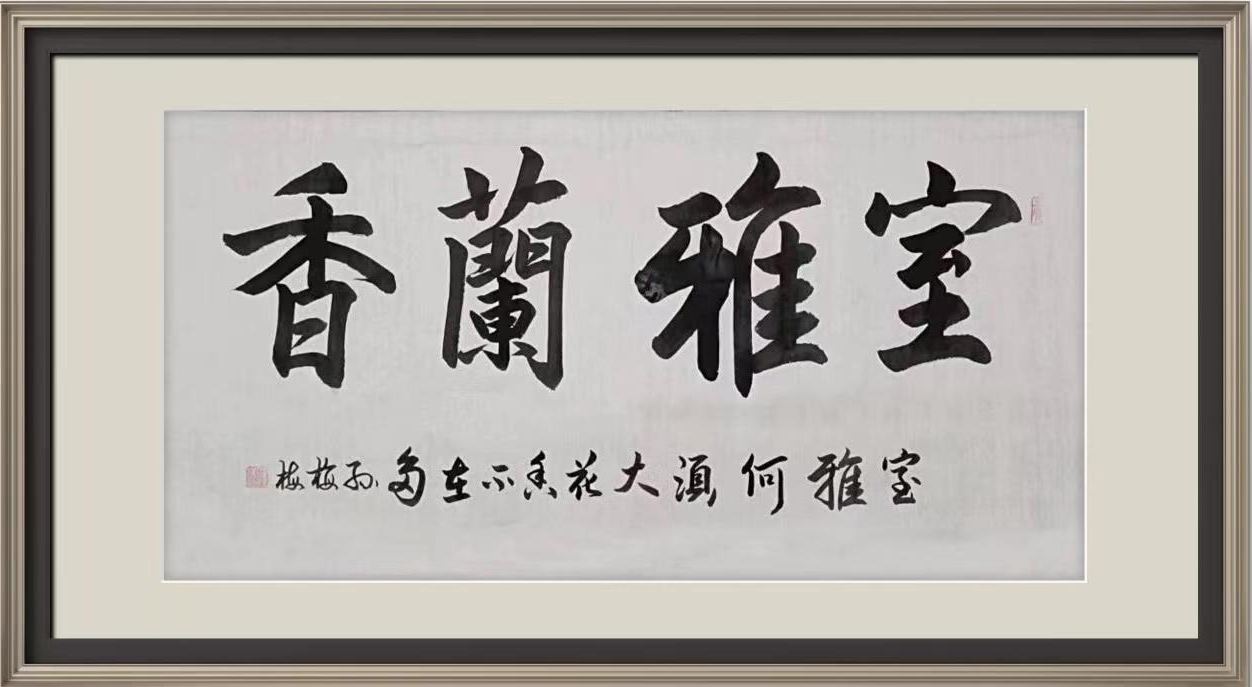 室雅蘭香
室雅何須大花香不在多孙梅梅